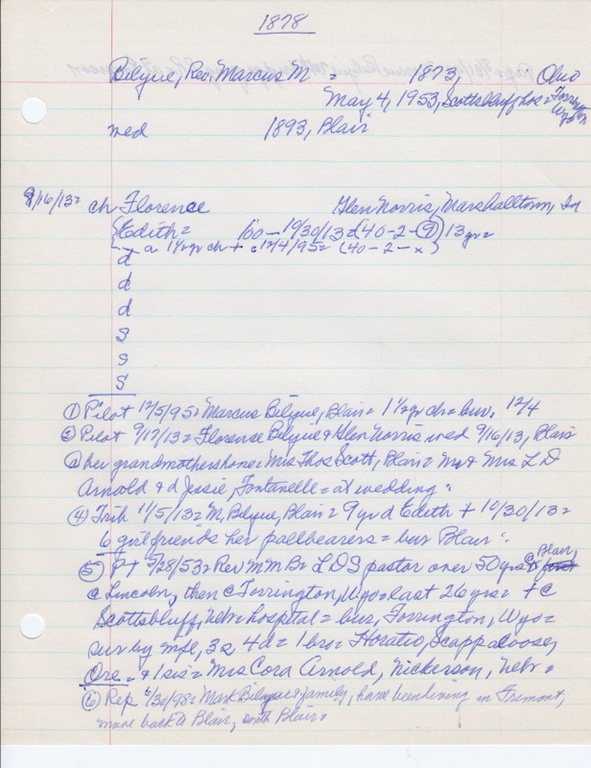 1878
Bilyue, Rev, Marcus M = 1873, Ohio
May 4, 1953, Scottsbluff hos = Torrington Wyo
wed 1893, Blair
9/16/13= ch Florence Glen Norris, Marshalltown, Ia
Edith = 100 - 10/30/13 = (40-2-9) 13 yr =
a 1 1/2 yr ch + c 12/4/95 = (40-2-x)
d
d
d
s
s
s
① Pilot 12/5/95 = Marcus Bilyue, Blair = 1 1/2 yr ch = bur. 12/4
② Pilot 9/17/13 = Florence Bilyue & Glen Norris wed 9/16/13, Blair
@ her grandmothers home = Mrs Thos Scott, Blair = Mr & Mrs L D
Arnold & d Jessie, Fontanelle = at wedding =
④ Trib 11/5/13 = M, Bilyue, Blair = 9 yr d Edith + 10/30/13 =
6 girlfriends her pallbearers = bur Blair =
⑤ PT 5/28/53 = Rev M M B = LDS pastor over 50 yrs @ Blair,
@ Lincoln, then @ Torrington, Wyo = last 26 yrs = + @
Scottsbluff, Nebr hospital = bur, Torrington, Wyo =
sur by wfe, 3 s 4 d = 1 bro = Horatio, Scappaloose,
Ore = & 1 sis = Mrs Cora Arnold, Nickerson, Nebr =
⑥ Rep 6/30/98 = Mark Bilyue & family, have been living in Fremont,
move back to Blair, south Blair =